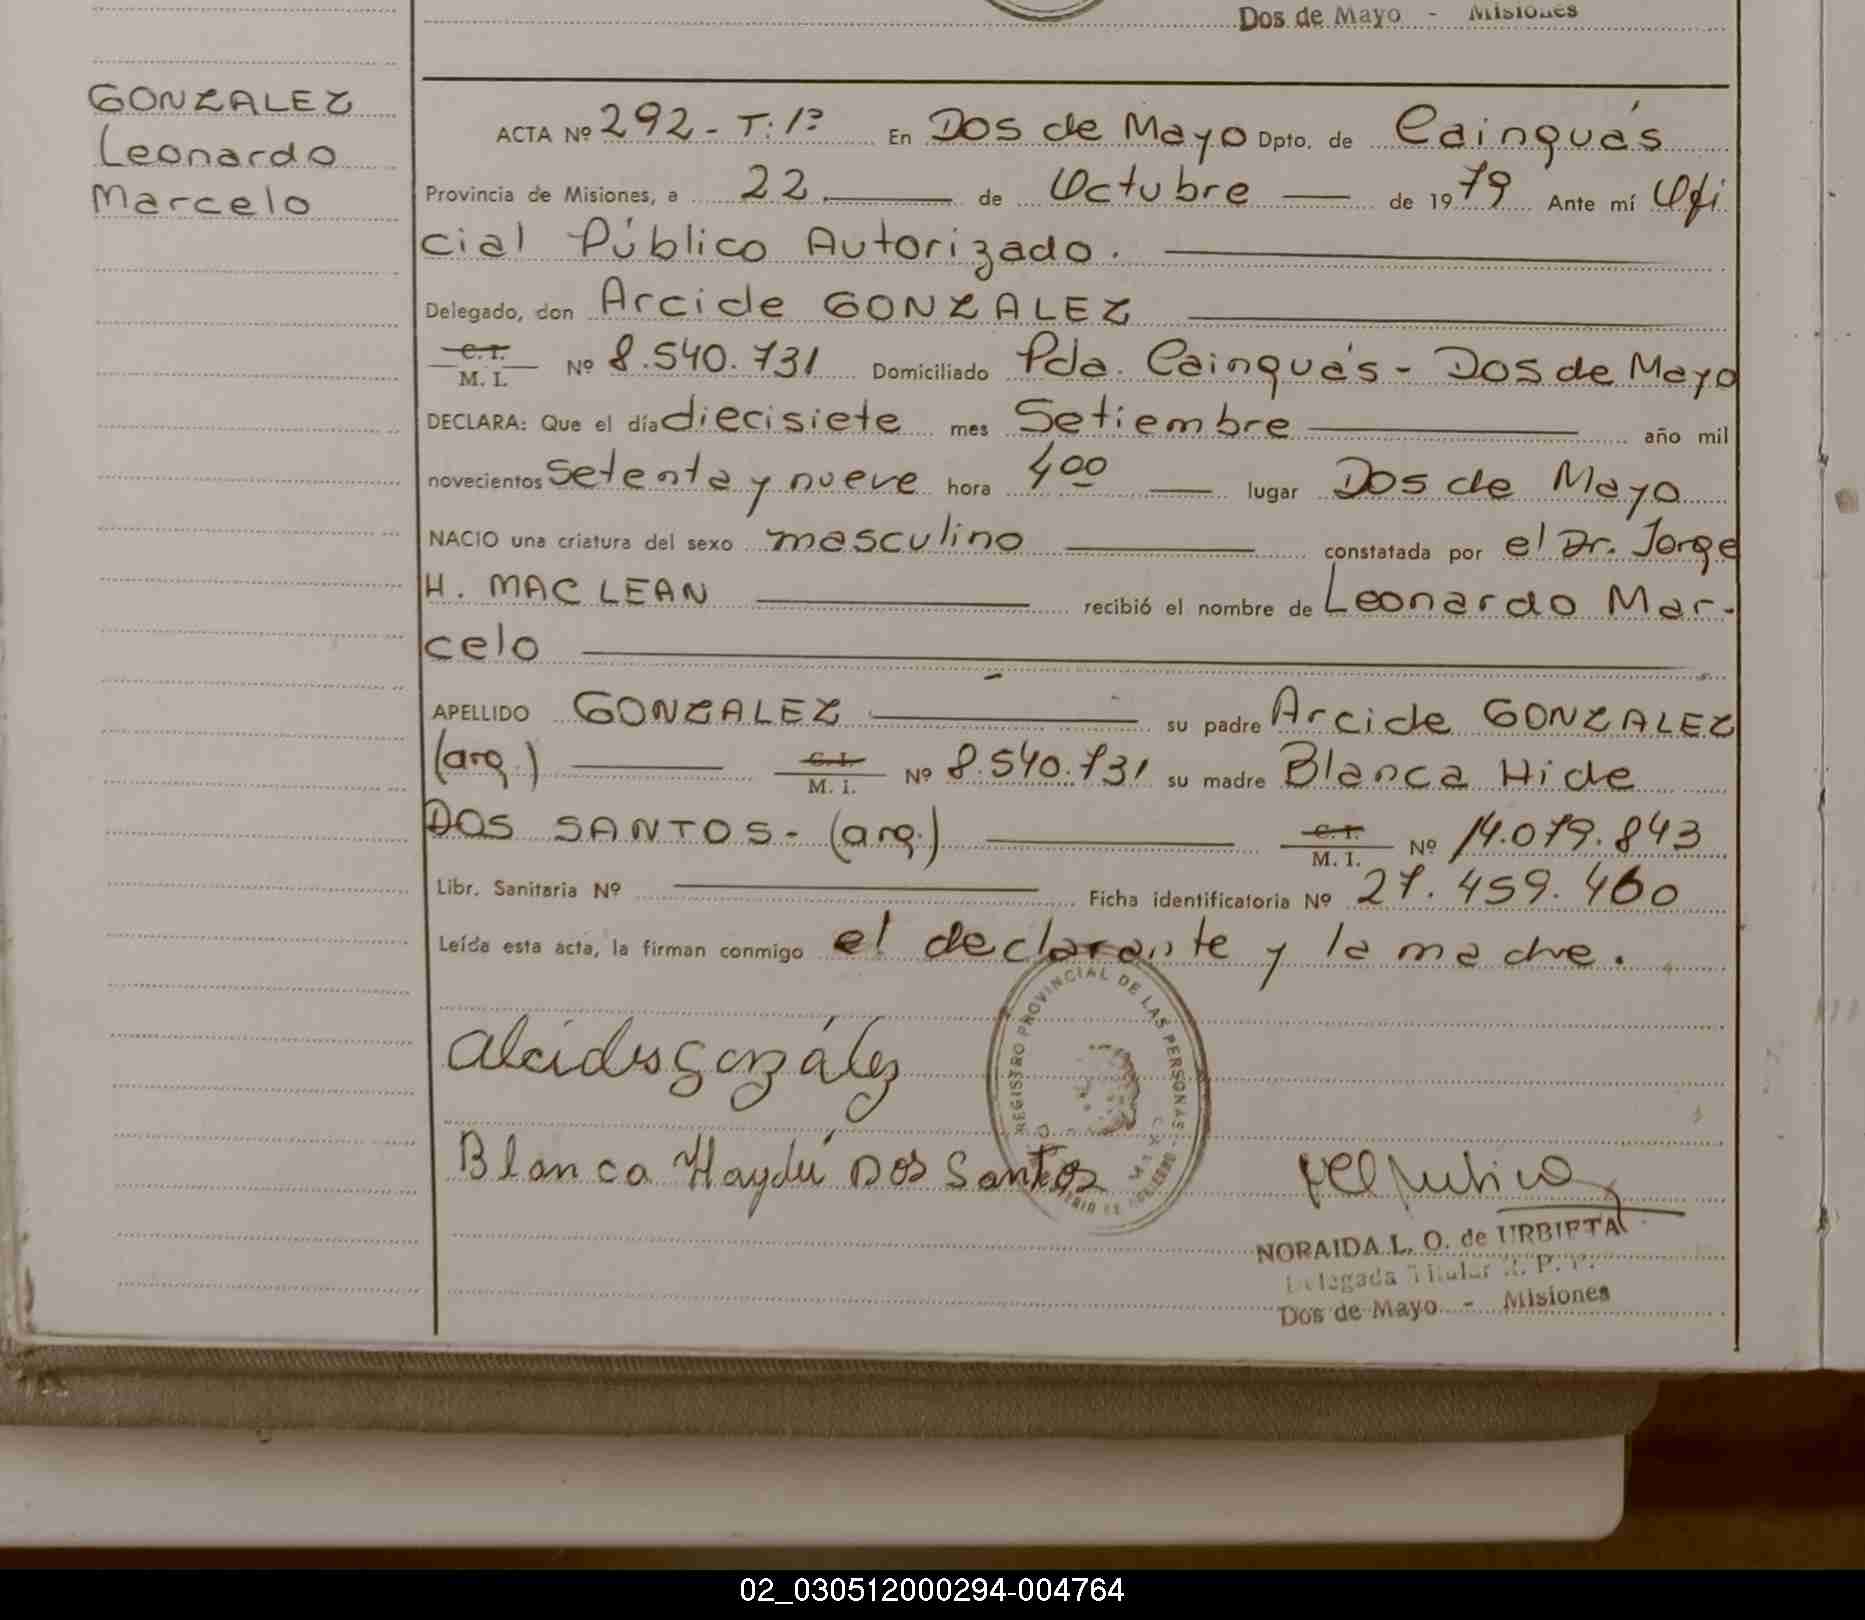 Dos de Mayo - Misiones
GONZALEZ
Leonardo
Marcelo
ACTA Nº 292 - T: 1º En Dos de Mayo Dpto. de Cainguás
Provincia de Misiones, a 22 de Octubre de 1979 Ante mí Ofi
cial Público Autorizado.
Delegado, don Arcide GONZALEZ
C. I.
M. I. Nº 8.540.731 Domiciliado Pda. Cainguás - Dos de Mayo
DECLARA: Que el día diecisiete mes Setiembre año mil
novecientos setenta y nueve hora 4 00 lugar Dos de Mayo
NACIO una criatura del sexo masculino constatada por el Dr. Jorge
H. MAC LEAN recibió el nombre de Leonardo Mar-
celo
APELLIDO GONZALEZ su padre Arcide GONZALEZ
(arg.) C. I. M. I. Nº 8.540.731 su madre Blanca Hide
DOS SANTOS - (arg.) C. I. M. I. Nº 14.079.843
Libr. Sanitaria Nº Ficha identificatoria Nº 27.459.460
Leída esta acta, la firman conmigo el declarante y la madre.
REGISTRO PROVINCIAL DE LAS PERSONAS
Alcides González
Blanca Haydé Dos Santos
NORAIDA L. O. de URBIETA
Delegada Titular R. P. P.
Dos de Mayo - Misiones
02_030512000294-004764